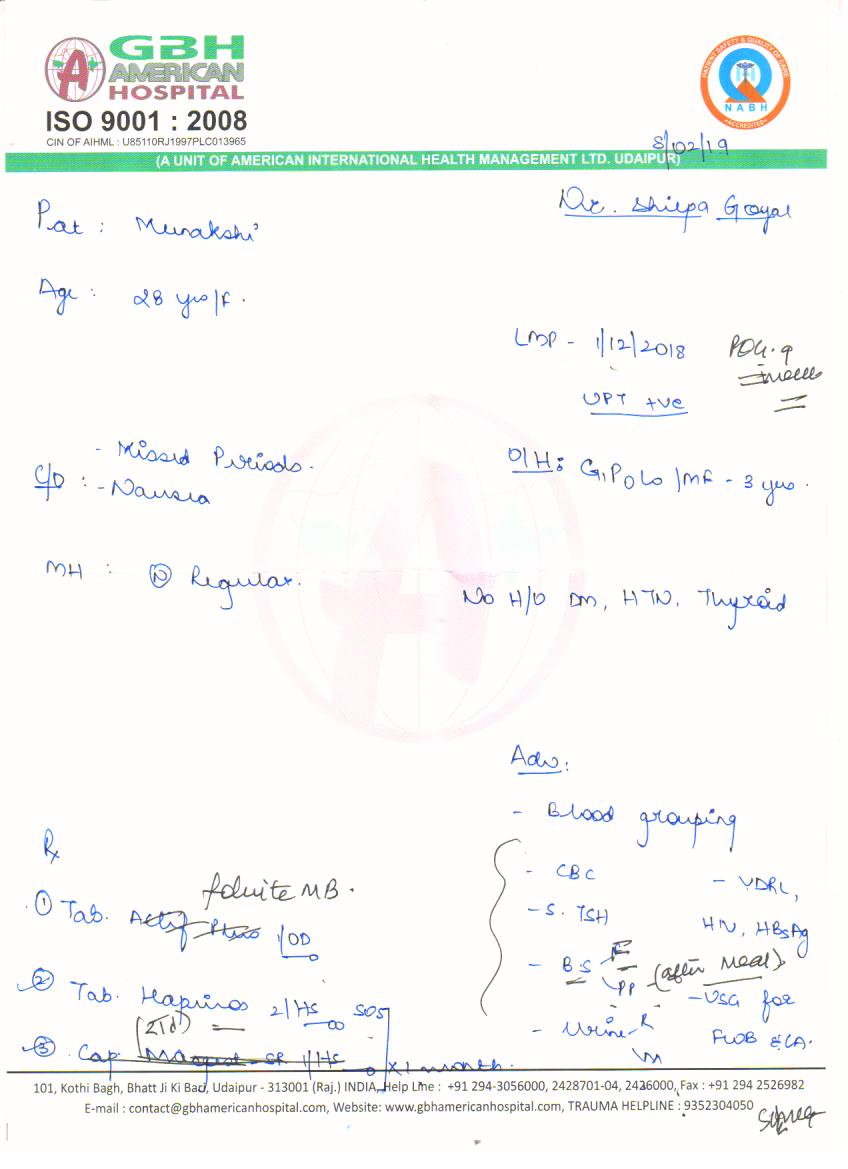 GBH
AMERICAN
HOSPITAL
ISO 9001 : 2008
CIN OF AIHML : U85110RJ1997PLC013965
PATIENT SAFETY & QUALITY OF CARE
NABH
ACCREDITED
8/02/19
(A UNIT OF AMERICAN INTERNATIONAL HEALTH MANAGEMENT LTD. UDAIPUR)
Dr. Shilpa Goyal
Pat : Minakshi
Age : 28 yrs/F.
LMP - 1/12/2018 POG. 9
UPT +ve
- Missed Periods.
C/O : - Nausia
O/H: G1P0L0 / MF - 3 yrs.
MH : N Regular.
No H/O DM, HTN, Thyroid
Adv:
- Blood grouping
- CBC
- S. TSH
- BS F
PP (after meal)
- Urine R
M
- VDRL,
HIV, HBsAg
- USG for
FWOB & CA.
Rx
① Tab. folvite MB. 1 OD
② Tab. 2/HS SOS
③ Cap. SR 1/HS x 1 month.
101, Kothi Bagh, Bhatt Ji Ki Badi, Udaipur - 313001 (Raj.) INDIA, Help Line : +91 294-3056000, 2428701-04, 2426000, Fax : +91 294 2526982
E-mail : contact@gbhamericanhospital.com, Website: www.gbhamericanhospital.com, TRAUMA HELPLINE : 9352304050